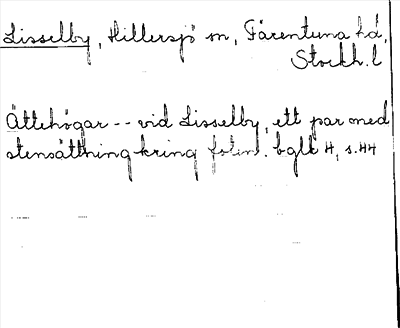 Lisselby, Hillersjö sn, Färentuna hd,
Stockh. l
Ättehögar -- vid Lisselby, ett par med
stensättning kring foten. bglk 4, s.44